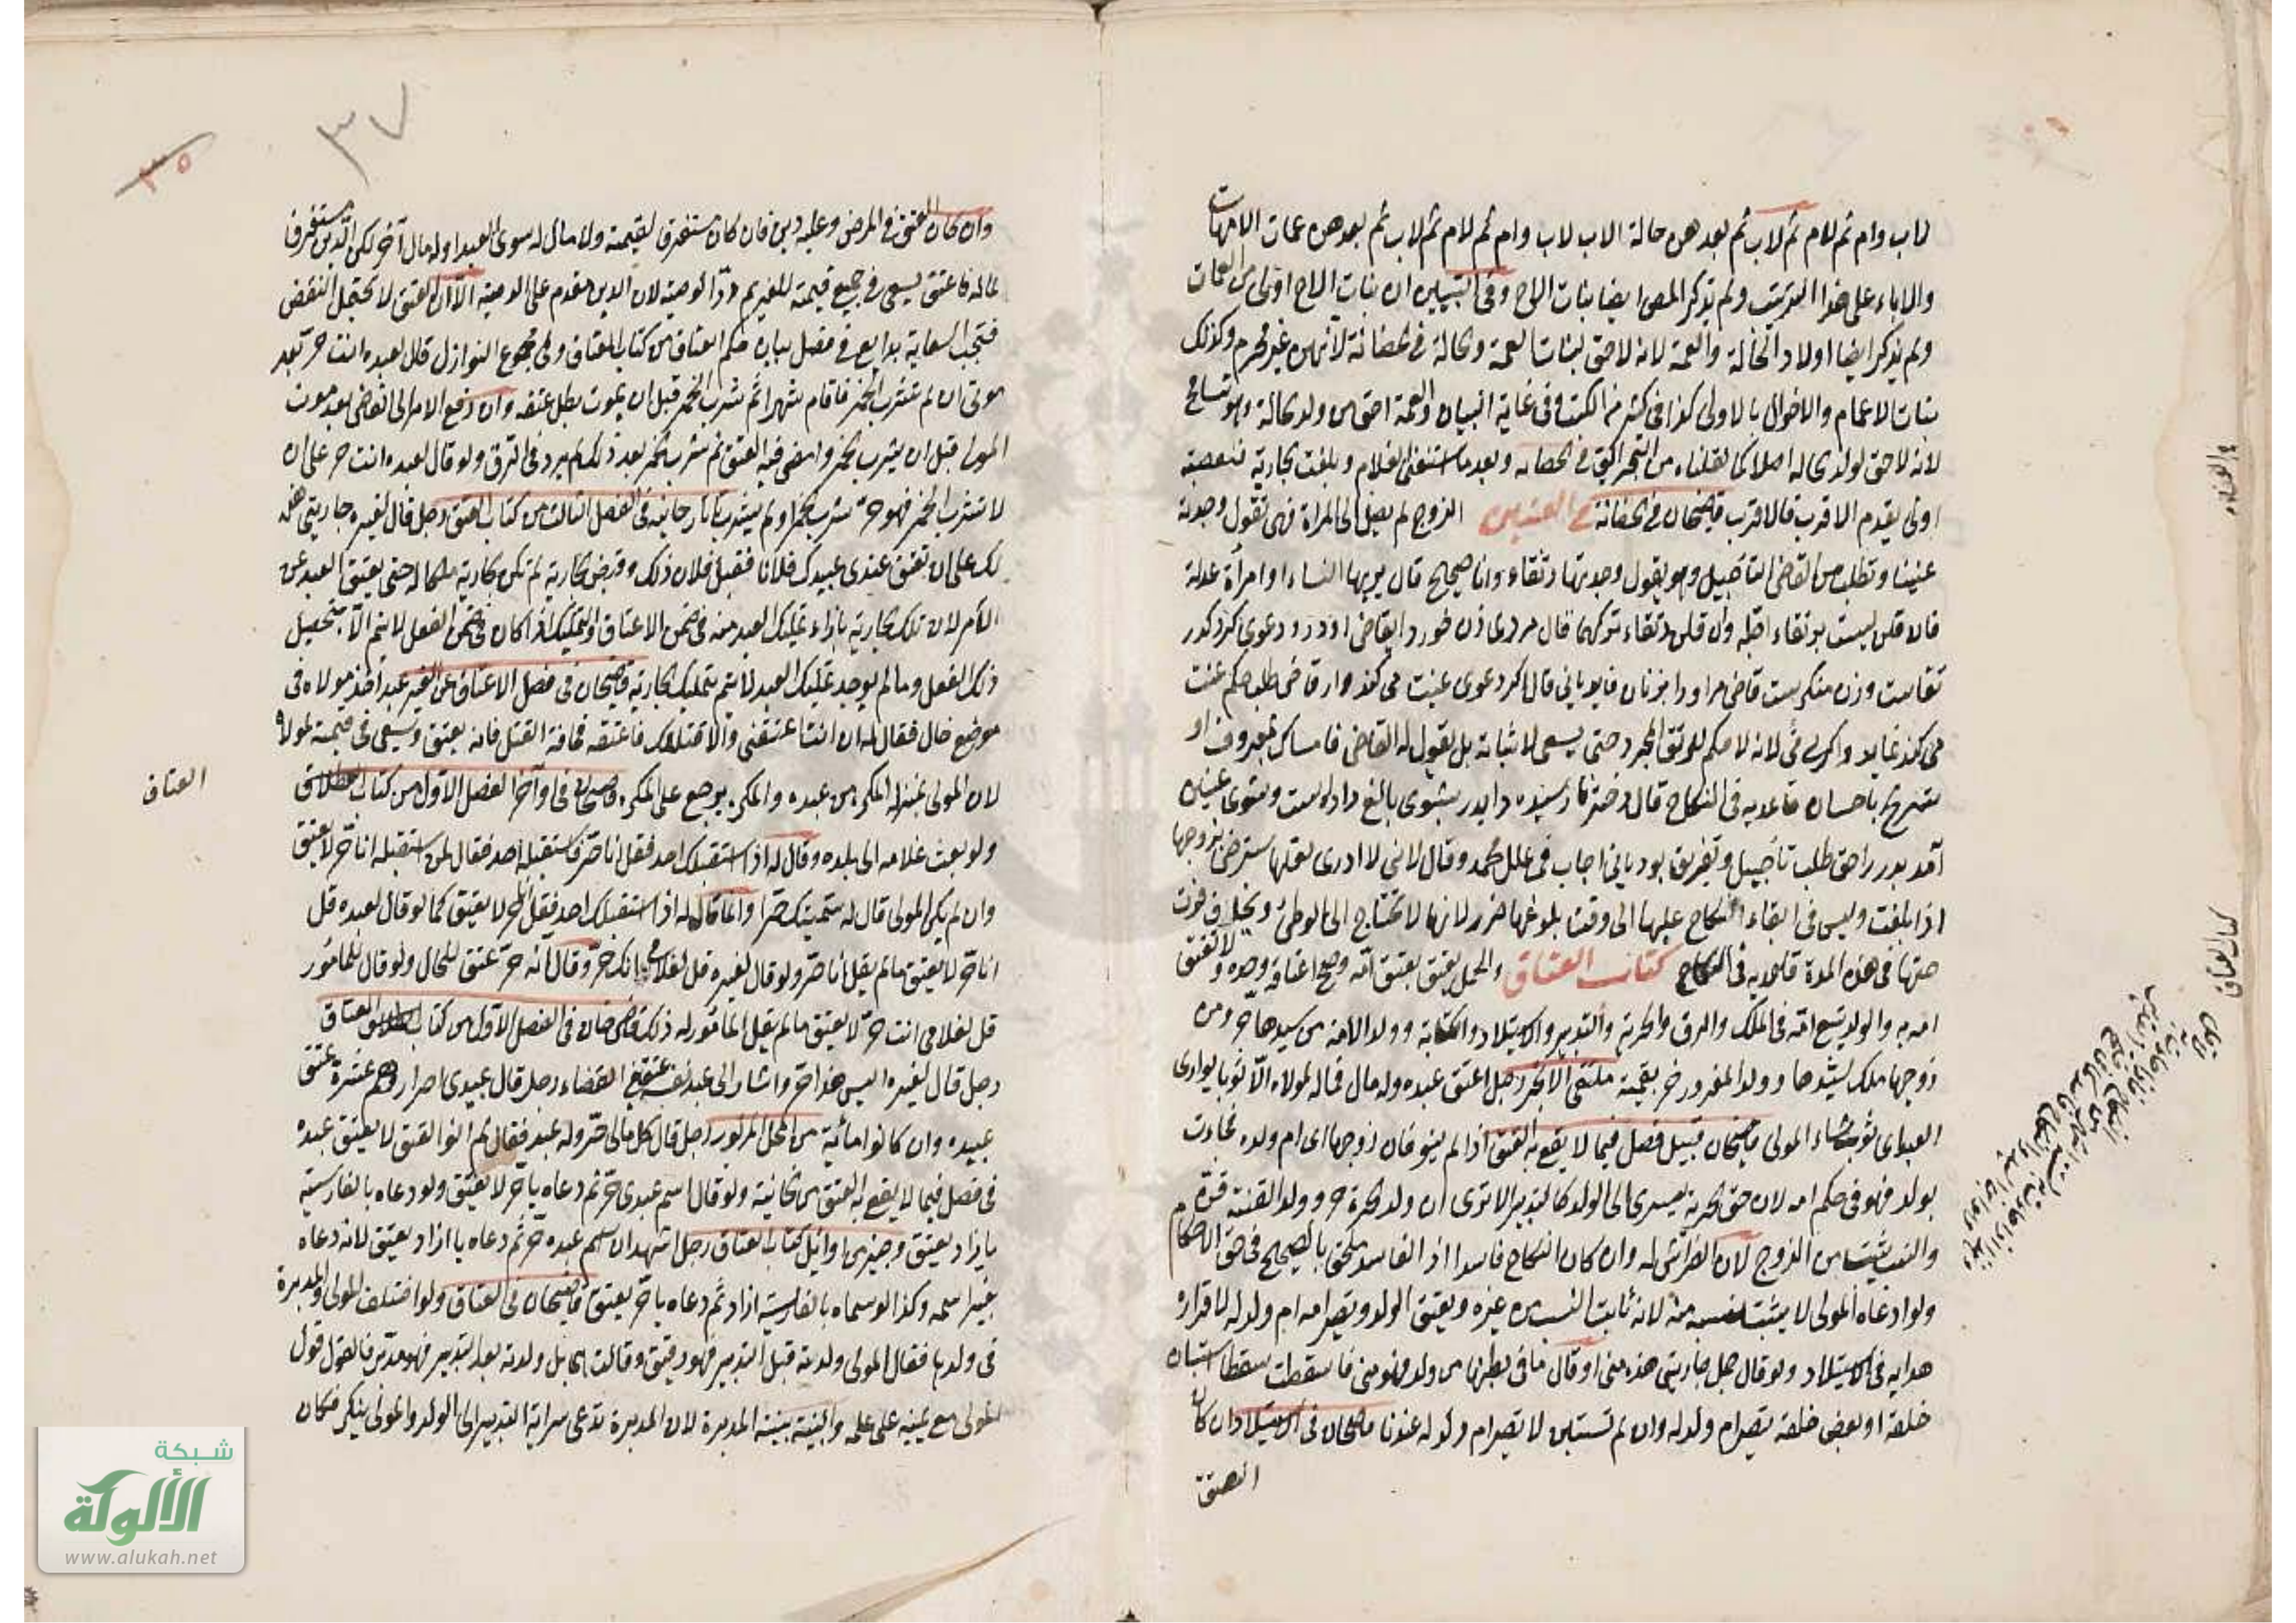 لاب وام ثم لام ثم لاب ثم بعدهن خالة الاب لاب وام ثم لام ثم لاب ثم بعدهن عمات الامهات
والاباء على هذا الترتيب ولم يذكر المص ايضا بنات الاخ وفى التبيين ان بنات الاخ اولى من العمات
ولم يذكر ايضا اولاد الخالة والعمة لانه لا حق لبنات العمة والخالة فى الحضانة لانهن غير محرم وكذلك
بنات الاعمام والاخوال بالاولى كذا فى كثير من الكتب وفى غاية البيان والعمة احق من ولد الخالة وهو تسامح
لانه لا حق لولد الخالة اصلا كما نقلناه من البحر الرائق فى الحضانة وبعد ما استغنى الغلام وبلغت الجارية فالعصبة
اولى يقدم الاقرب فالاقرب قاضيخان فى الحضانة فى العنين الزوج لم يصل الى المرأة فهى تقول وجدته
عنينا وتطلب من القاضى التأجيل وهو يقول وجدتها رتقاء وانا صحيح قال يريها النساء او امرأة عدلة
فان قلن ليست برتقاء اجله وان قلن رتقاء تركها قال مردى زن خود را بقاضى اورد ودعوى كرد كه
رتقاست وزن منكرست قاضى مر او را بزنان نمايد يانى قال اكر دعوى عينت مى كند واز قاضى طلب حكم عنت
مى كند نمايد واكر نى نى لانه لا حكم للرتق المجرد حتى يسعى لاثباته بل يقول له القاضى فامساك بمعروف او
تسريح باحسان قاعديه فى النكاح قال دختر نارسيده را پدر بشوى بالغ داده است وشوى عنين
آمد پدر را حق طلب تأجيل وتفريق بود يانى اجاب فى علل محمد وقال لانى لا ادرى لعلها سترضى بزوجها
اذا بلغت وليس فى ابقاء النكاح عليها الى وقت بلوغها ضرر لانها لا تحتاج الى الوطئ
حقها فى هذه المدة قاعديه فى النكاح كتاب العتاق والحمل يعتق بعتق امه وصح اعتاقه وحده ولا تعتق
امه به والولد يتبع امه فى الملك والرق والحرية والتدبير والاستيلاد والكتابة وولد الامة من سيدها حر ومن
زوجها ملك لسيدها وولد المغرور حر بقيمته ملتقى الابحر رجل اعتق عبده وله مال فماله لمولاه الا ثوبا يوارى
العبد اى ثوب شاء المولى قاضيخان قبيل فصل فيما لا يقع به العتق اذا لم ينو فان زوجها اى ام ولده فجاءت
بولد فهو فى حكم امه لان حق الحرية يسرى الى الولد كالتدبير الا ترى ان ولد الحرة حر وولد القنة قن
والنسب يثبت من الزوج لان الفراش له وان كان النكاح فاسدا اذ الفاسد ملحق بالصحيح فى حق الاحكام
ولو ادعاه المولى لا يثبت نسبه منه لانه ثابت النسب من غيره ويعتق الولد وتصير امه ام ولد له لاقراره
هدايه فى الاستيلاد ولو قال حمل جاريتى هذه منى او قال ما فى بطنها من ولد فهو منى فاسقطت سقطا استبان
خلقه او بعض خلقه تصير ام ولد له وان لم تستبن لا تصير ام ولد له عندنا قاضيخان فى الاستيلاد وان كان
العتق
فى الحضانة
كتاب العتاق
٣٧
٣٥
وان كان العتق فى المرض وعليه دين فان كان مستغرقا لقيمته ولا مال له سوى العبد او له مال آخر لكن الدين مستغرق
لماله فاعتق يسعى فى جميع قيمته للغريم ردا لوصيته لان الدين مقدم على الوصية الا ان العتق لا يحتمل النقض
فتجب السعاية بدايع فى فصل بيان حكم العتاق من كتاب العتاق وفى مجموع النوازل قال لعبده انت حر بعد
موتى ان لم تشرب الخمر فاقام شهرا ثم شرب الخمر قبل ان يموت بطل عتقه وان رفع الامر الى القاضى بعد موت
المولى قبل ان يشرب الخمر وامضى فيه العتق ثم شرب الخمر بعد ذلك لم يرد فى الرق ولو قال لعبده انت حر على ان
لا تشرب الخمر فهو حر شرب الخمر او لم يشرب تاتارخانيه فى الفصل الثالث من كتاب العتق رجل قال لغيره جاريتى هذه
لك على ان تعتق عندى عبدك فلانا فقبل فلان ذلك وقبض الجارية لم تكن الجارية ملكا له حتى يعتق العبد عن
الآمر لان تلك الجارية بازاء تمليك العبد منه فى ضمن الاعتاق والتمليك اذا كان فى ضمن الفعل لا يتم الا بتحصيل
ذلك الفعل وما لم يوجد تمليك العبد لا يتم تمليك الجارية قاضيخان فى فصل الاعتاق عن الغير عبد اخذ مولاه فى
موضع خال فقال له ان انت اعتقتنى والا قتلتك فاعتقه مخافة القتل فانه يعتق ويسعى فى قيمته لمولاه
لان المولى بمنزلة المكره من عبده والمكره يرجع على المكره قاضيخان فى اواخر الفصل الاول من كتاب العتاق
ولو بعث غلامه الى بلده وقال له اذا استقبلك احد فقل انا حر فاستقبله احد فقال لمن استقبله انا حر لا يعتق
وان لم يكن المولى قال له سميتك حرا وانما قال له اذا استقبلك احد فقل انا حر لا يعتق كما لو قال لعبده قل
انا حر لا يعتق ما لم يقل انا حر ولو قال لغيره قل لغلامى انك حر او قال انه حر عتق للحال ولو قال للمأمور
قل لغلامى انت حر لا يعتق ما لم يقل المأمور له ذلك قاضى خان فى الفصل الاول من كتاب العتاق
رجل قال لغيره اليس هذا حر واشار الى عبد نفسه عتق فى القضاء رجل قال عبيدى احرار وهم عشرة عتق
عبيده وان كانوا مائة من المحل المزبور رجل قال كل مالى حر وله عبد فقال لم انو العتق لا يعتق عبده
فى فصل فيما لا يقع به العتق من الخانية ولو قال اسم عبدى حر ثم دعاه يا حر لا يعتق ولو دعاه بالفارسية
يا ازاد يعتق وجيز فى اوائل كتاب العتاق رجل اشهد ان اسم عبده حر ثم دعاه يا ازاد يعتق لانه دعاه
بغير اسمه وكذا لو سماه بالفارسية ازاد ثم دعاه يا حر يعتق قاضيخان فى العتاق ولو اختلف المولى والمدبرة
فى ولدها فقال المولى ولدته قبل التدبير فهو رقيق وقالت بل ولدته بعد التدبير فهو مدبر فالقول قول
المولى مع يمينه على علمه والبينة بينة المدبرة لان المدبرة تدعى سراية التدبير الى الولد والمولى ينكر فكان
العتاق
شبكة
الألوكة
www.alukah.net